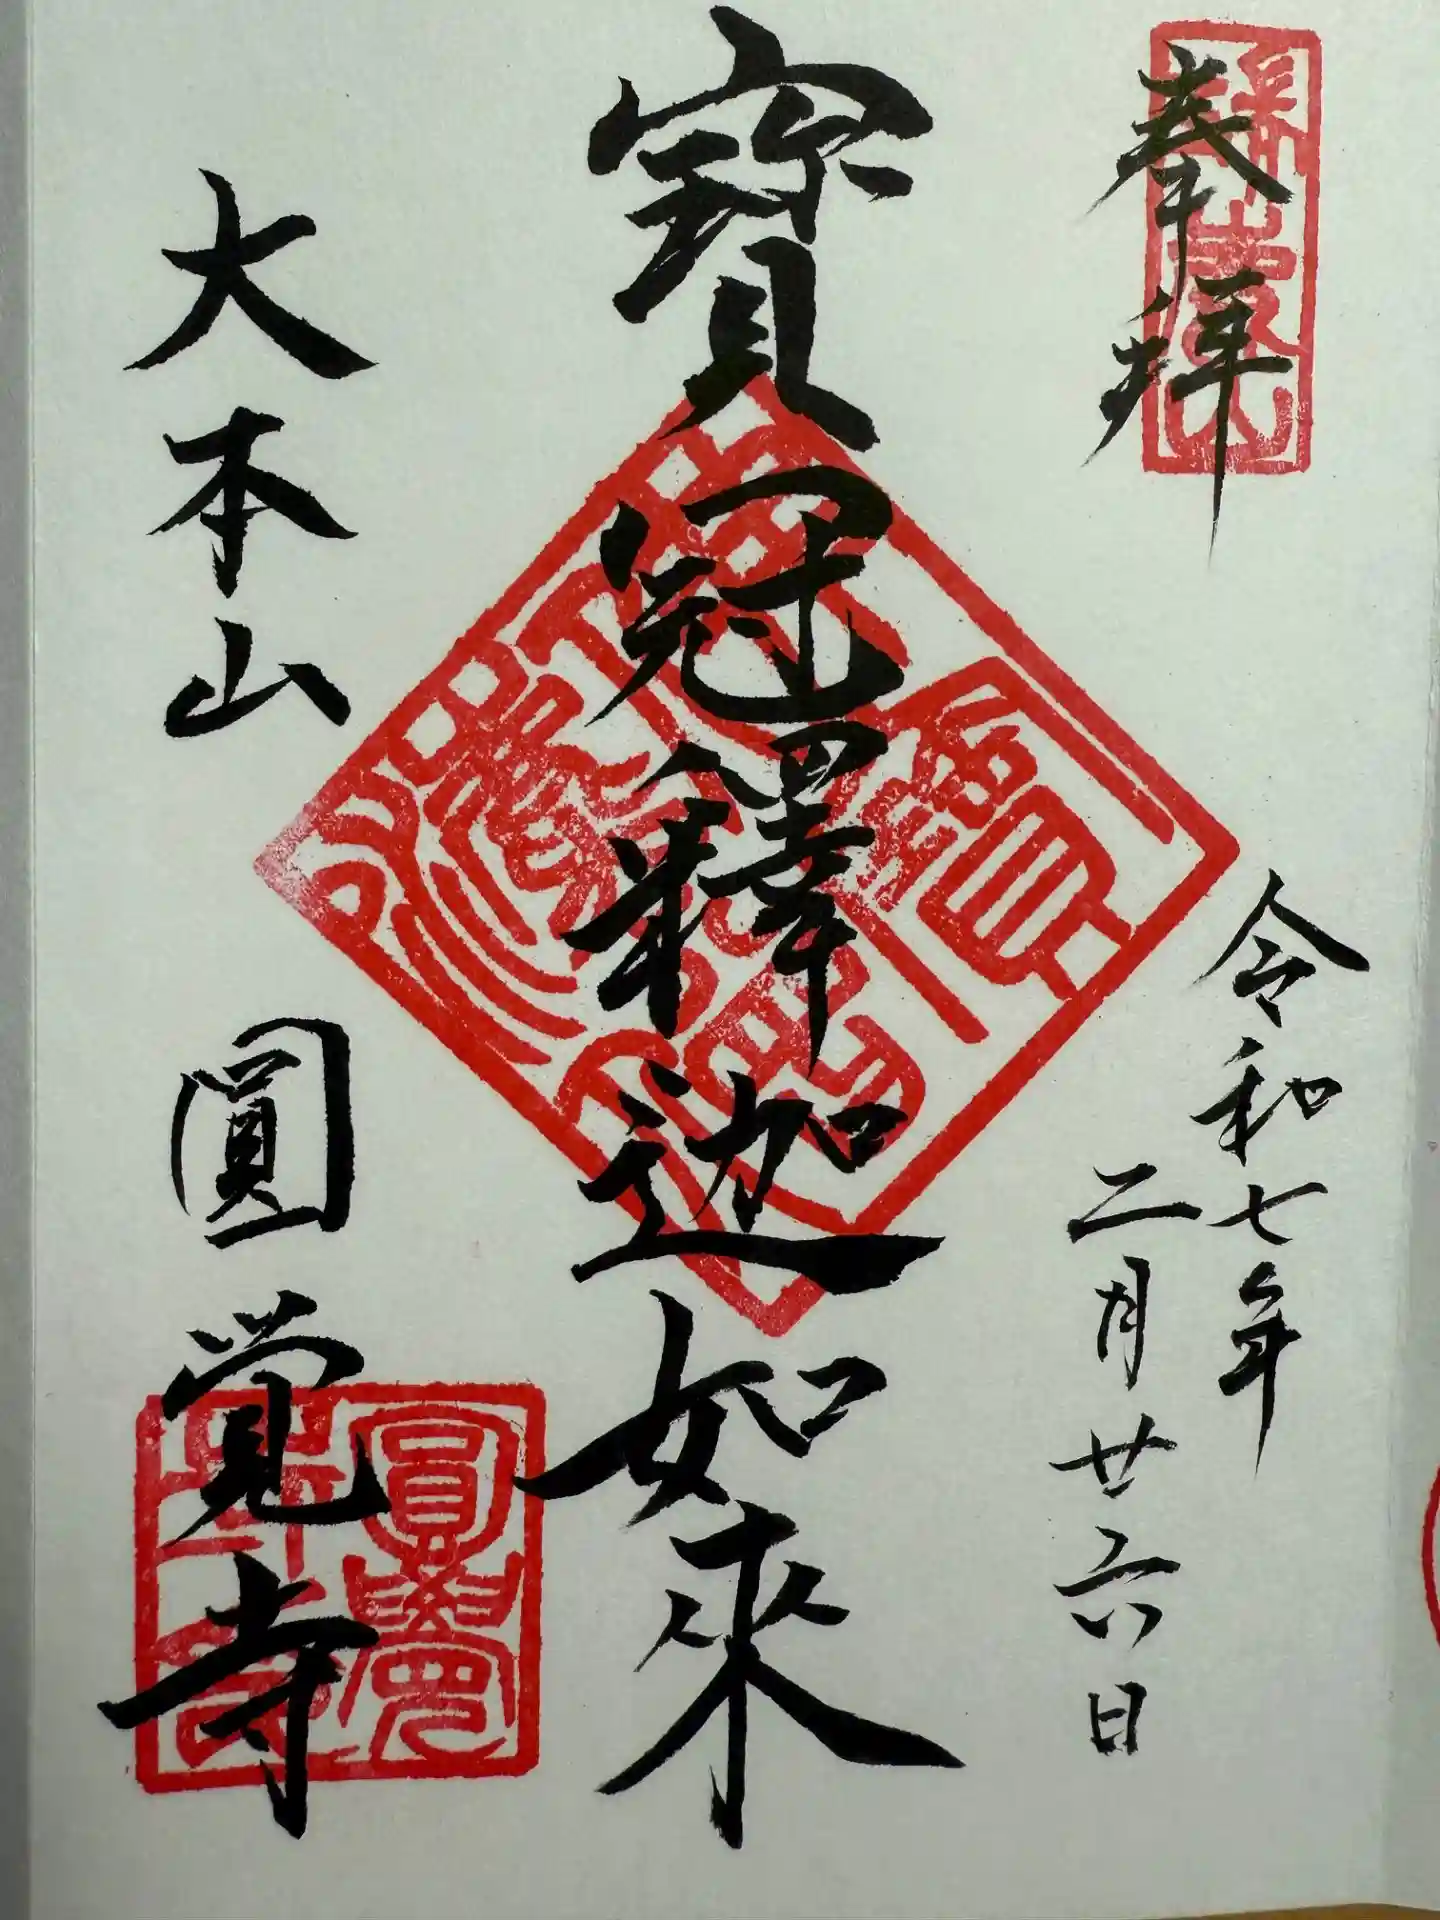 奉拝
令和七年
二月廿六日
寶冠釋迦如來
大本山　圓覚寺